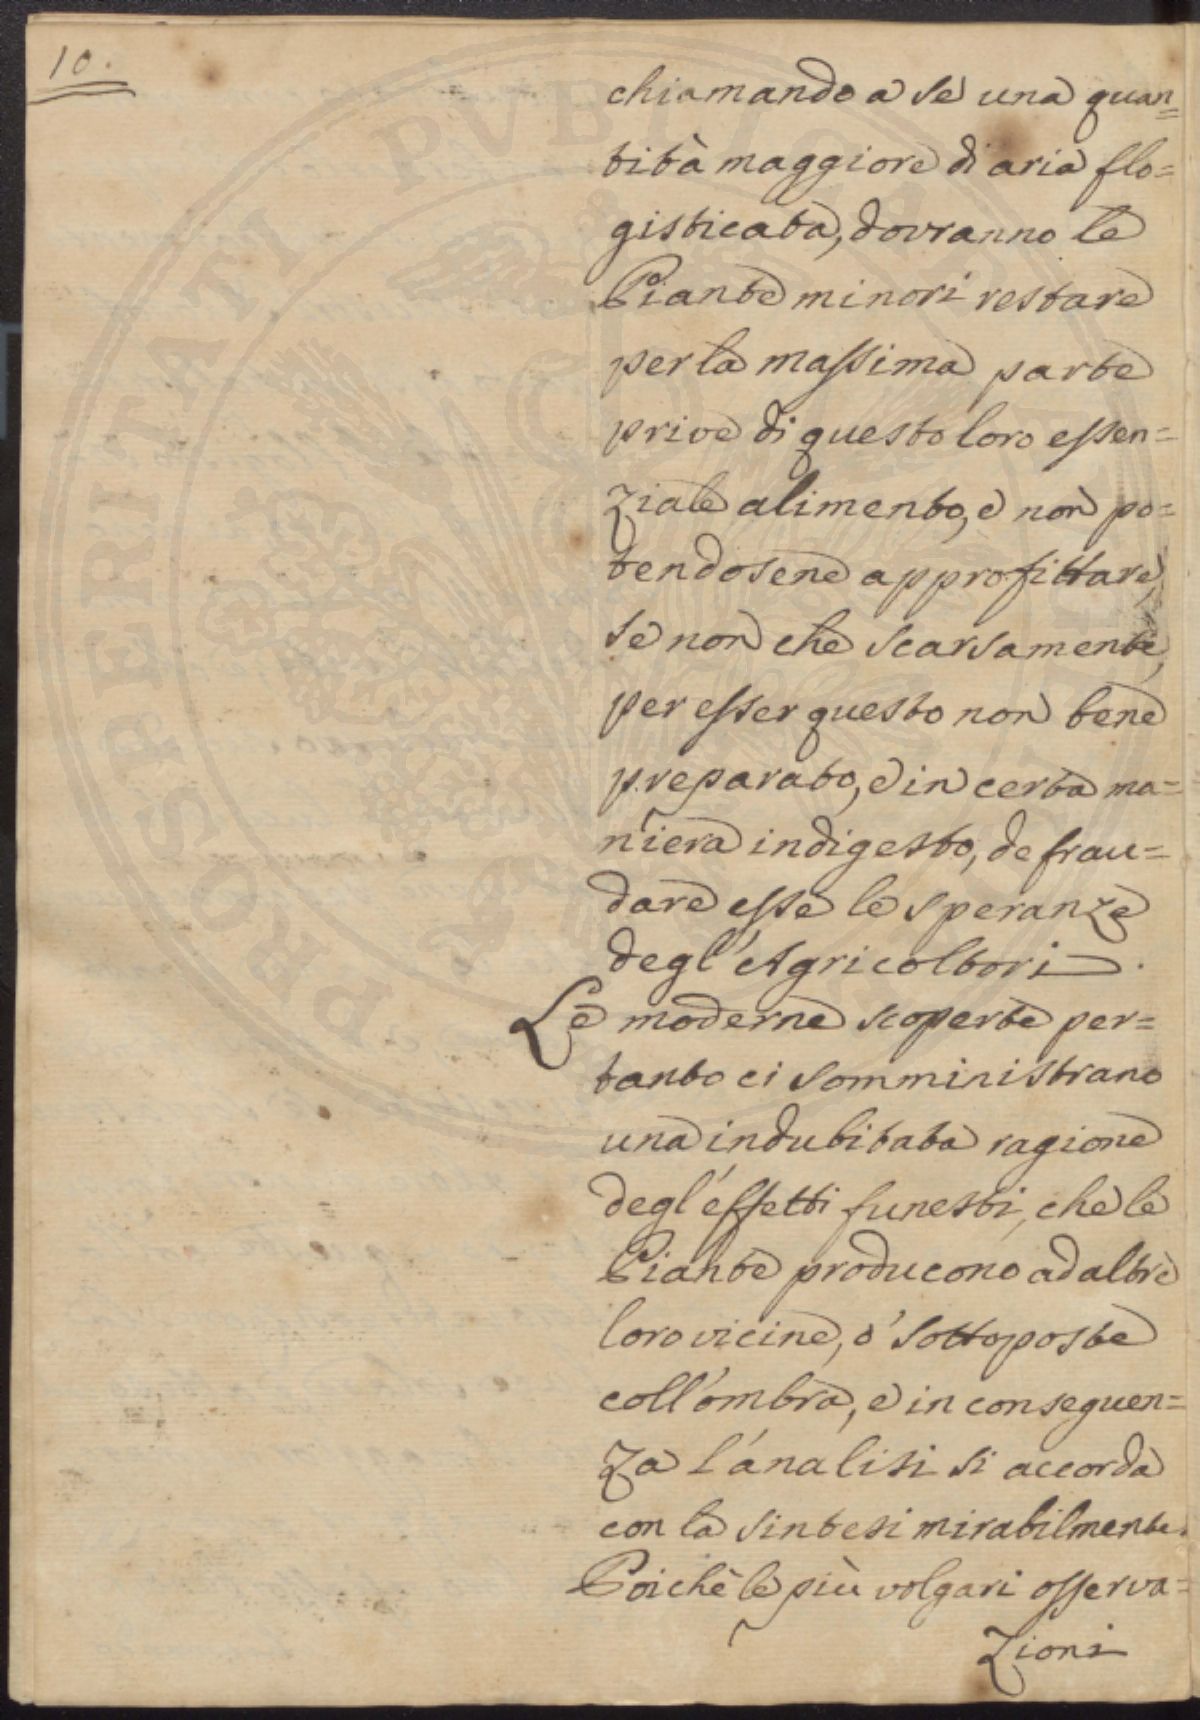 10.
chiamando a se una quan=
tità maggiore di aria flo=
gisticata, dovranno le
Piante minori restare
per la massima parte
prive di questo loro essen=
ziale alimento, e non po=
tendosene approfittare,
se non che scarsamente,
per esser questo non bene
preparato, e in certa ma=
niera indigesto, defrau=
dare esse le speranze
degl'Agricoltori.
Le moderne scoperte per=
tanto ci somministrano
una indubitata ragione
degl'effetti funesti, che le
Piante producono ad altre
loro vicine, o' sottoposte
coll'ombra, e in conseguen=
za l'analisi si accorda
con la sintesi mirabilmente.
Poichè le più volgari osserva=
zioni
PROSPERITATI PVBLICAE